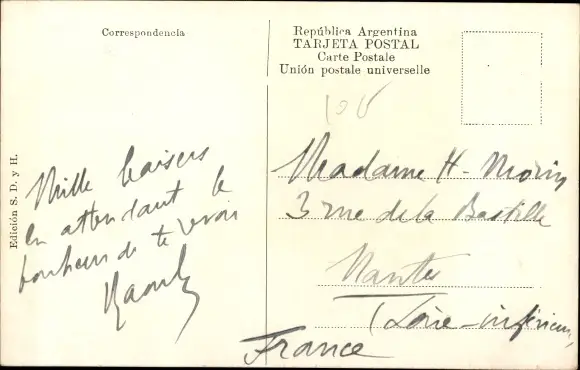 Correspondencia
República Argentina
TARJETA POSTAL
Carte Postale
Unión postale universelle
105
Edición S. D. y H.
Mille baisers
en attendant le
bonheur de te revoir
Raoul
Madame H. Morin
3 rue de la Bastille
Nantes
(Loire-inférieure)
France